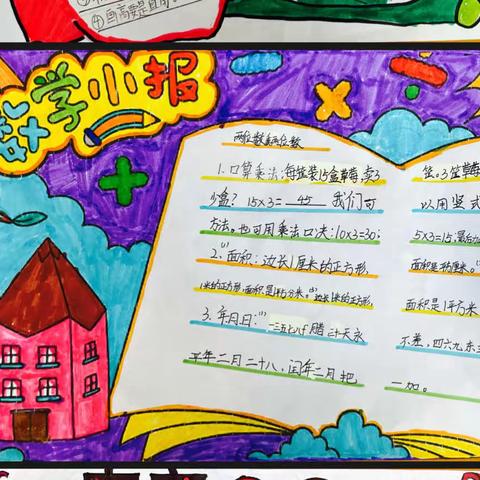 ④画高要是直
数学小报
两位数乘两位数
1.口算乘法:每筐装15盒草莓,卖3
筐。3筐草莓
盒? 15×3=45 我们可
以用竖式
方法。也可用乘法口决:10×3=30;
5×3=15,最后
2.⁽¹⁾面积:边长1厘米的正方形,
面积是1厘米。
1米的正方形,面积是1平方分米。⁽³⁾边长1米的正方形,
面积是1平方米
3.年月日:⁽¹⁾一三五七八十腊三十天永
不差,四六九冬三
平年二月二十八,闰年二月把
一加。